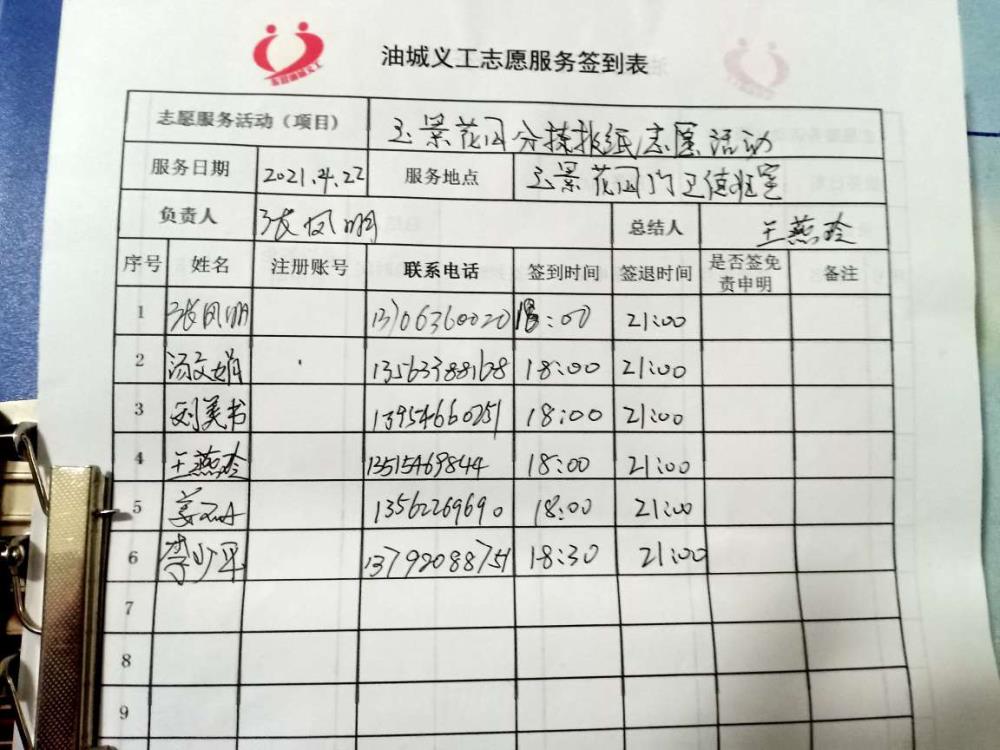 油城义工志愿服务签到表
志愿服务活动（项目） 玉景花园分拣报纸志愿活动
服务日期 2021.4.22 服务地点 玉景花园门卫值班室
负责人 张凤明 总结人 王燕玲
序号 姓名 注册账号 联系电话 签到时间 签退时间 是否签免责申明 备注
1 张凤明 13706360020 18:00 21:00
2 汤文娟 13563388168 18:00 21:00
3 刘美书 13954660251 18:00 21:00
4 王燕玲 13515469844 18:00 21:00
5 姜 13562269690 18:00 21:00
6 李少军 13792088751 18:30 21:00
7
8
9